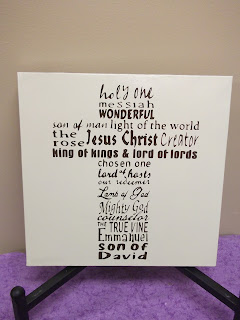 holy one
messiah
WONDERFUL
son of man light of the world
the rose Jesus Christ Creator
king of kings & lord of lords
chosen one
lord of hosts
our redeemer
Lamb of God
Mighty God
counselor
THE TRUE VINE
Emmanuel
son of
David